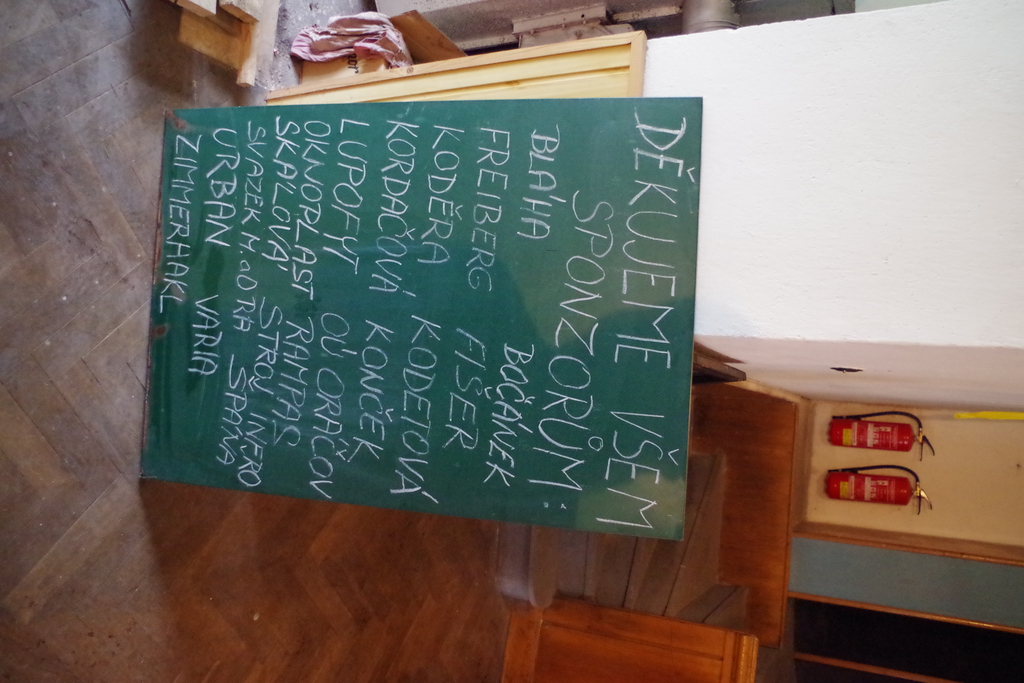 DĚKUJEME VŠEM
SPONZORŮM:
BLÁHA BOČÁNEK
FREIBERG FIŠER
KODĚRA KODETOVÁ
KORDAČOVÁ KONČEK
LUPOFYT OÚ ORAČOV
OKNOPLAST RAMPAS
SKALOVÁ STROJ INERO
SVAZEK M. a O. RA ŠPAŇA
URBAN VARIA
ZIMMERHAKL